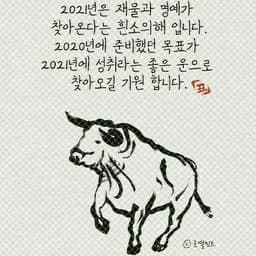 2021년은 재물과 명예가
찾아온다는 흰소의해 입니다.
2020년에 준비했던 목표가
2021년에 성취라는 좋은 운으로
찾아오길 기원 합니다.
ⓒ